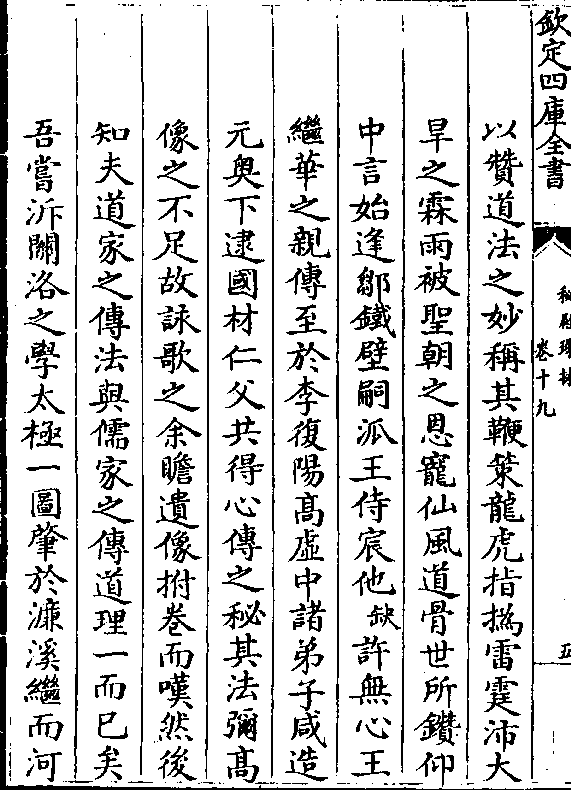 欽定四庫全書
卷十九
以贊道法之妙稱其鞭策龍虎指撝雷霆沛大
旱之霖雨被聖朝之恩寵仙風道骨世所鑽仰
中言始逢鄒鐵壁嗣派王侍宸他缺許無心王
繼華之親傳至於李復陽高虛中諸弟子咸造
元奥下逮國材仁父共得心傳之秘其法彌高
像之不足故詠歌之余瞻遺像拊卷而嘆然後
知夫道家之傳法與儒家之傳道理一而已矣
吾嘗泝關洛之學太極一圖肇於濂溪繼而河